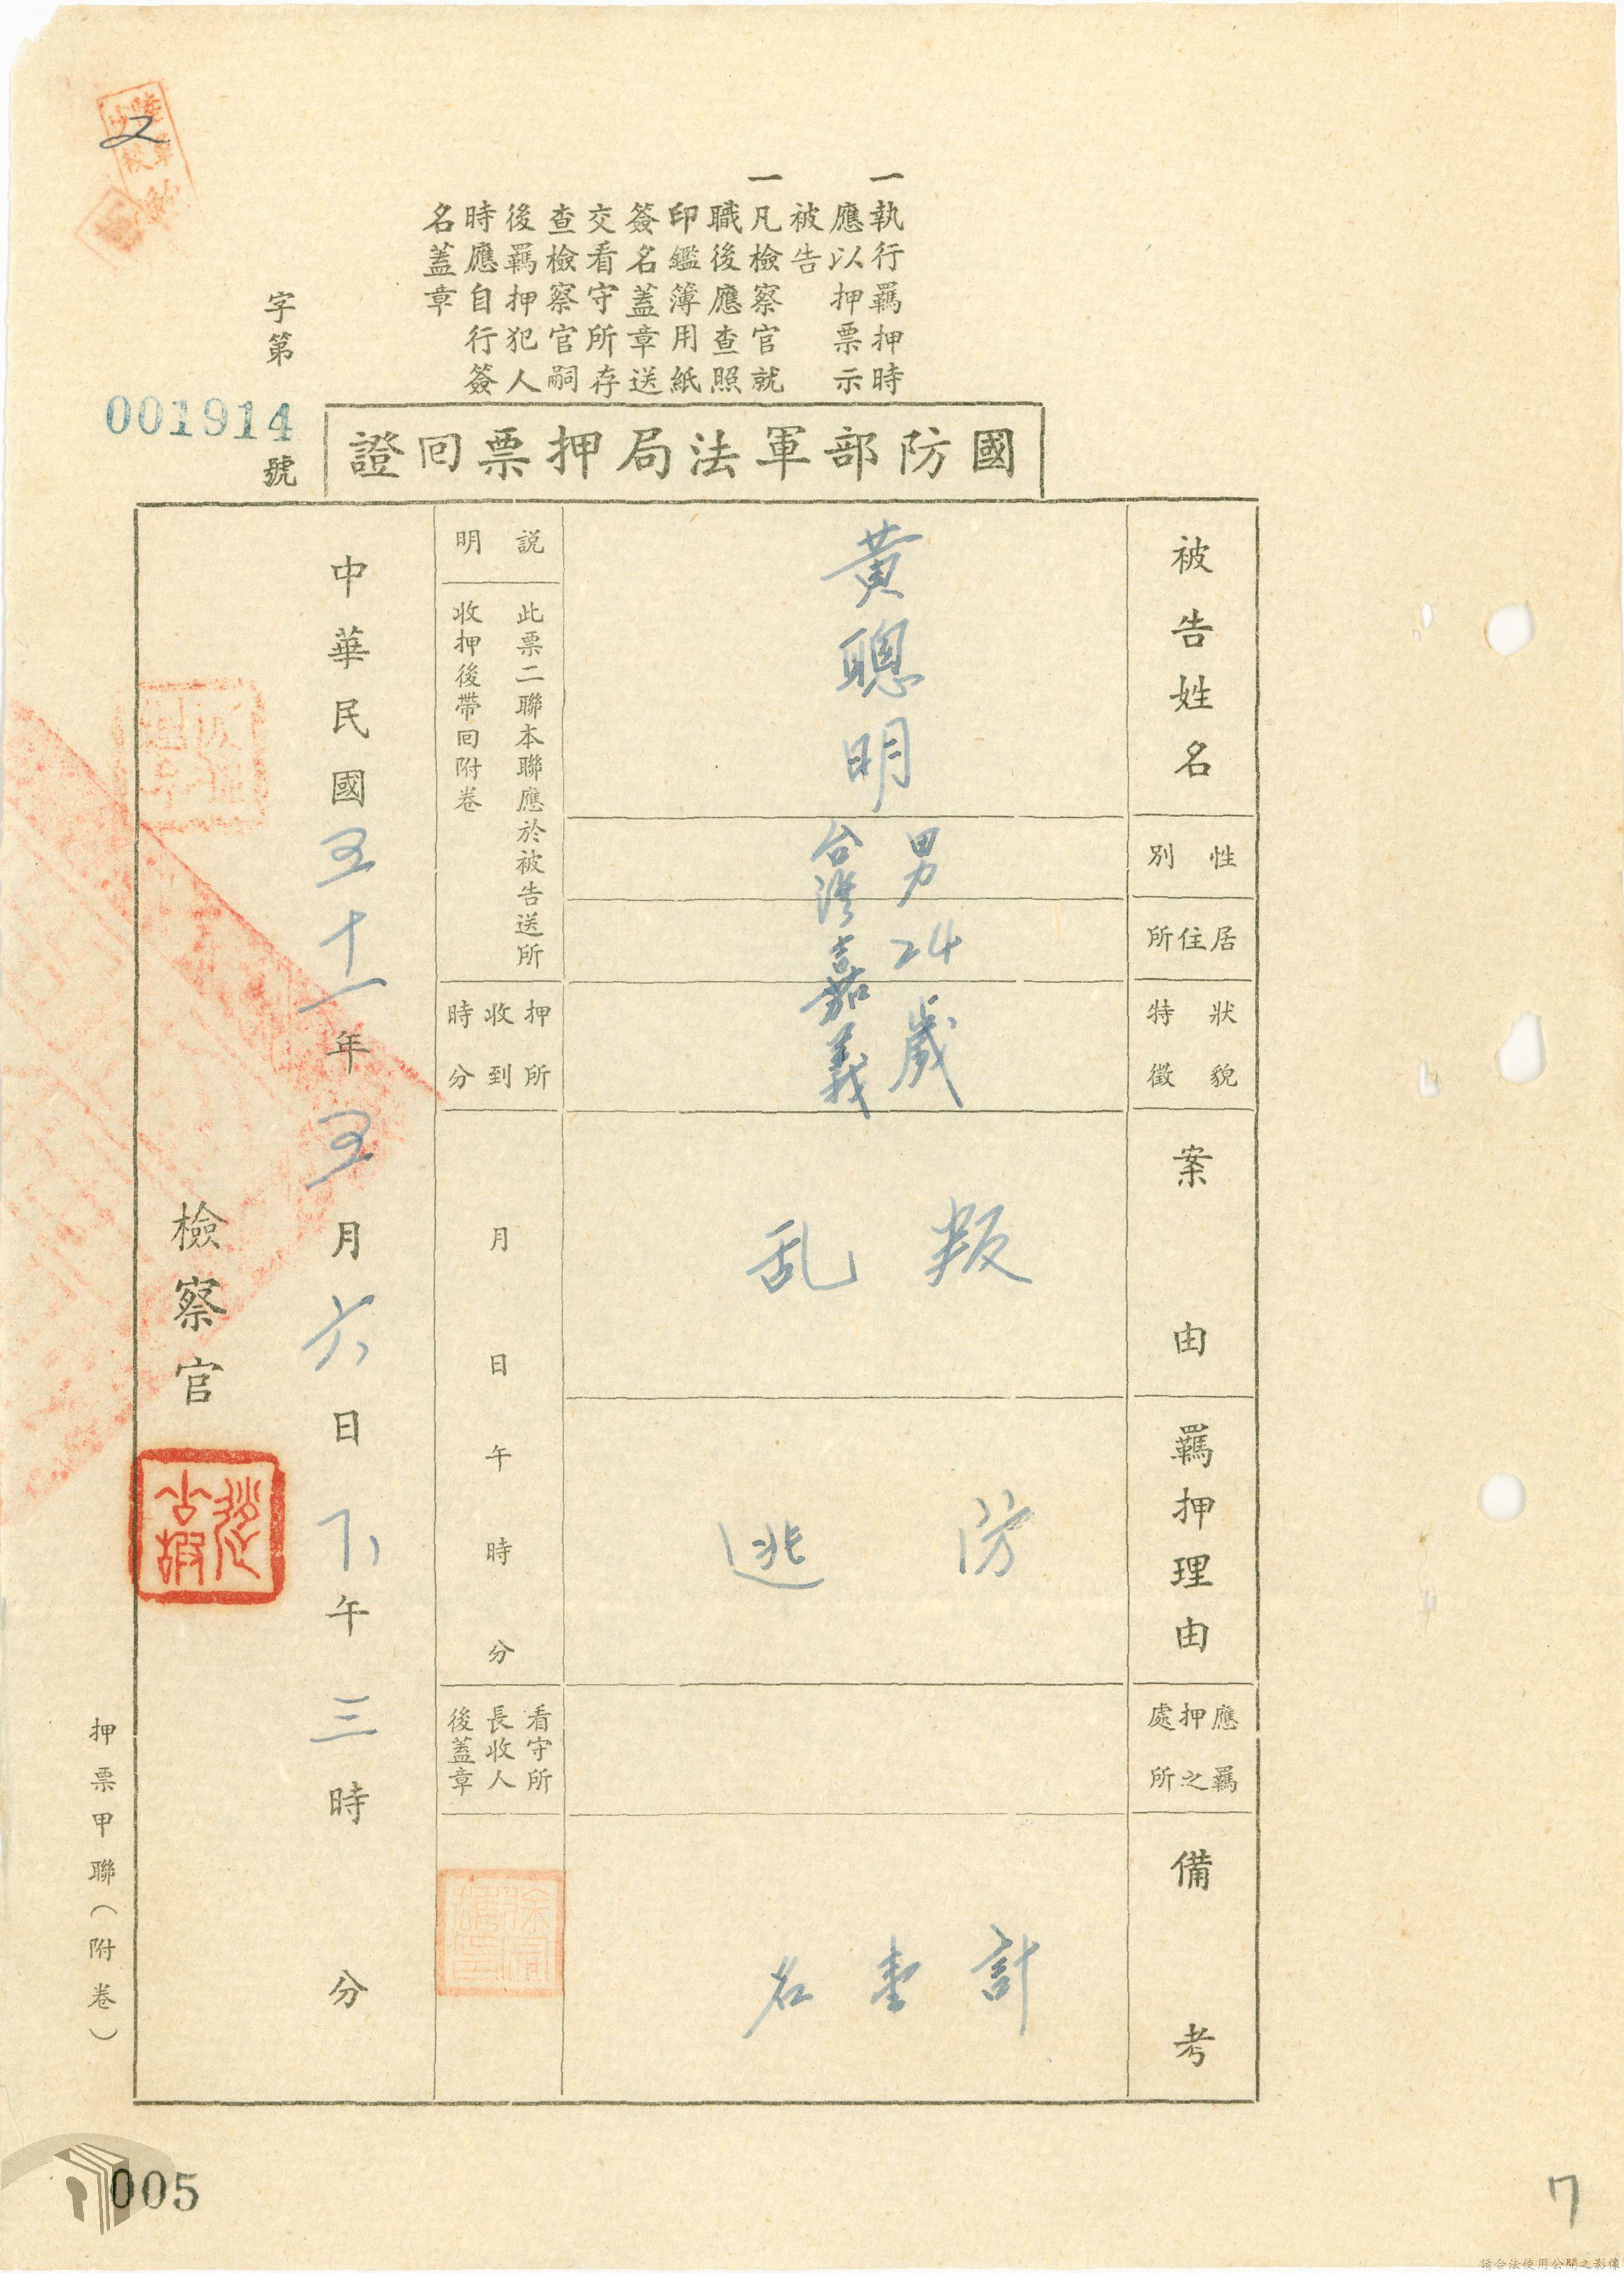 一執行羈押時
應以押票示
被告
一凡檢察官就
職後應查照
印鑑簿用紙
簽名蓋章送
交看守所存
查檢察官嗣
後羈押犯人
時應自行簽
名蓋章
字第
001914
號
國防部軍法局押票回證
被告姓名
黃聰明
性別
男
居住所
24
狀貌特徵
歲
台灣嘉義
案由
叛乱
羈押理由
防逃
應羈押之處所
備考
計壹名
說明
此票二聯本聯應於被告送所
收押後帶回附卷
押所收到時分
月 日 午 時 分
看守所
長收人
後蓋章
中華民國五十一年五月六日下午三時 分
檢察官
押票甲聯(附卷)
005
7
請合法使用公開之影像